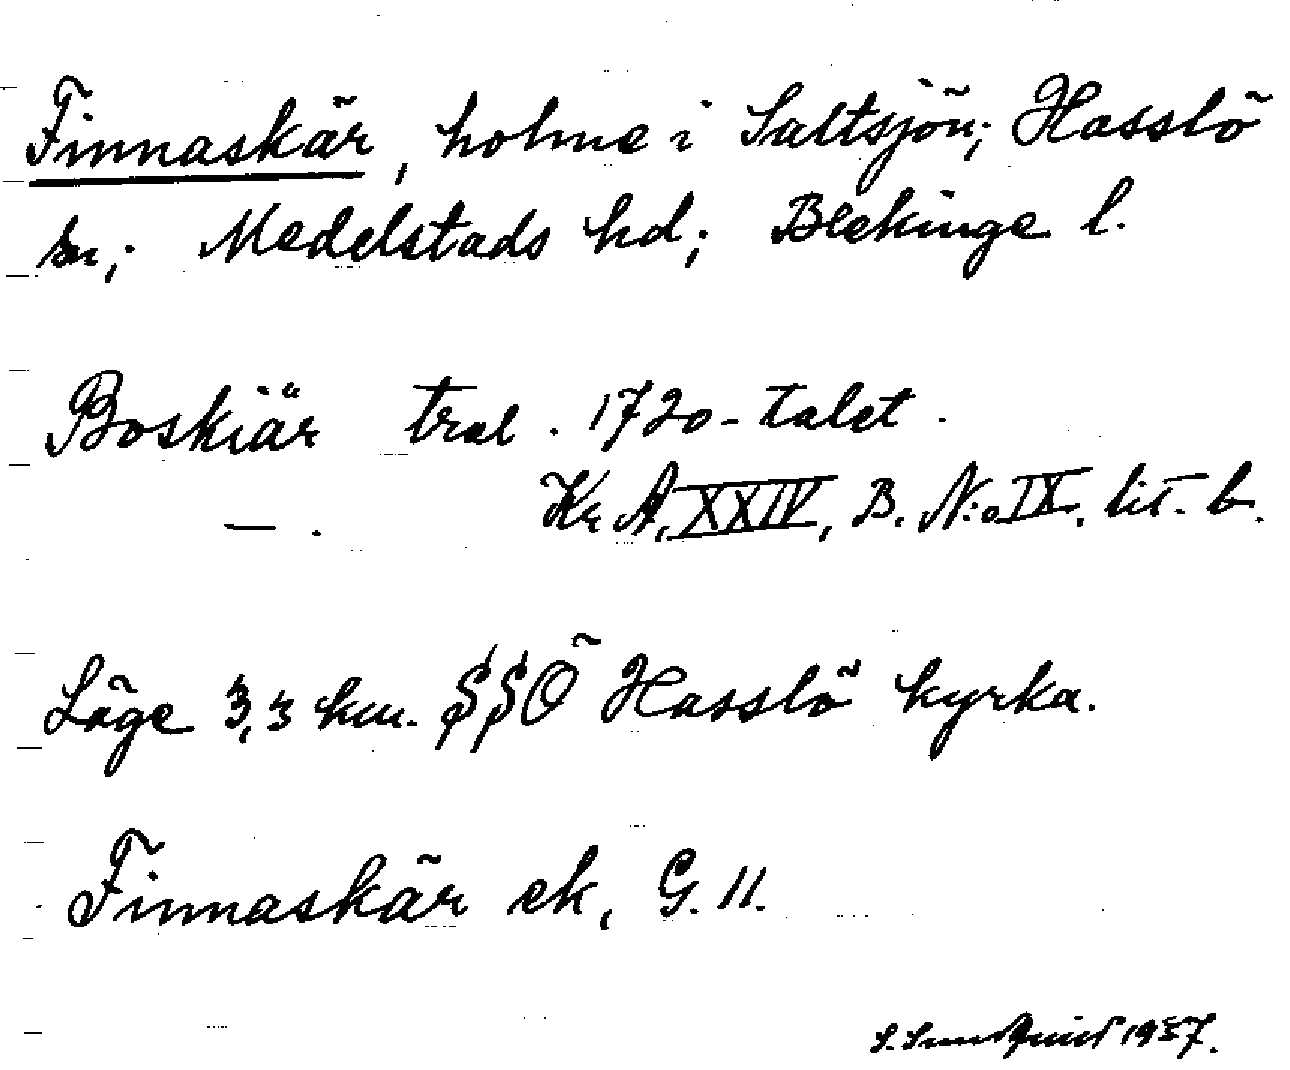 Finnaskär, holme i Saltsjön; Hasslö
sn; Medelstads hd; Blekinge l.
Boskiär tral. 1720-talet.
— . Kr A, XXIV, B. N:o IX. lit. b.
Läge 3,3 km. SSÖ Hasslö kyrka.
Finnaskär ek, G. 11.
S. Sundquist 1937.